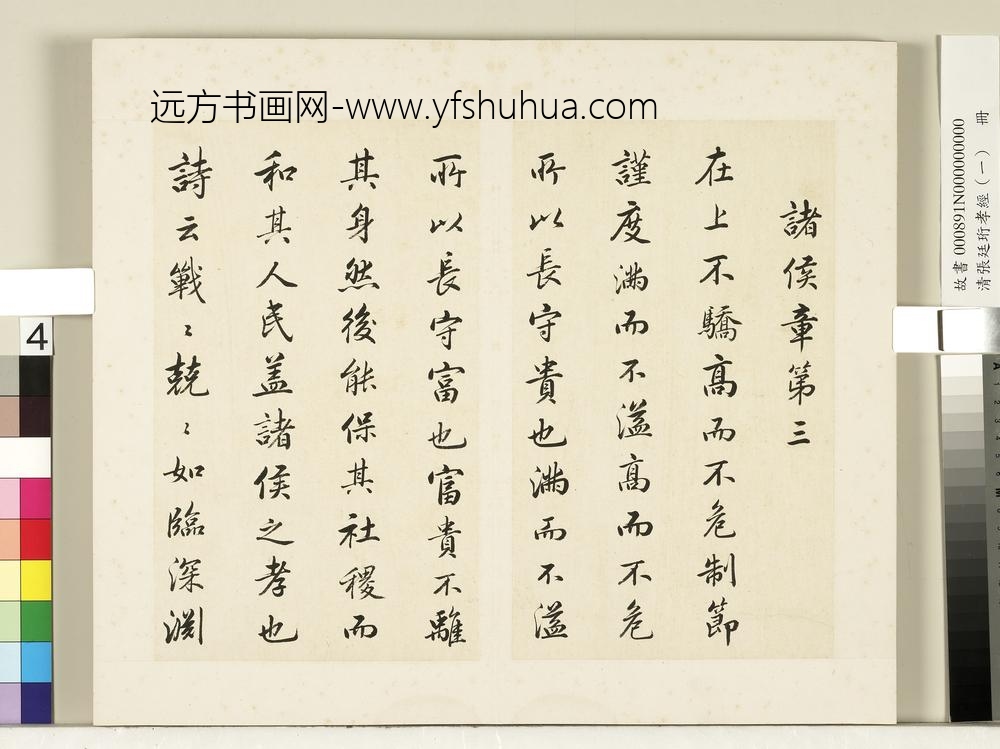 远方书画网-www.yfshuhua.com
諸侯章第三
在上不驕高而不危制節
謹度滿而不溢高而不危
所以長守貴也滿而不溢
所以長守富也富貴不離
其身然後能保其社稷而
和其人民盖諸侯之孝也
詩云戰〻兢〻如臨深淵
故書000891N000000000 冊
清張廷珩孝經（一）
4